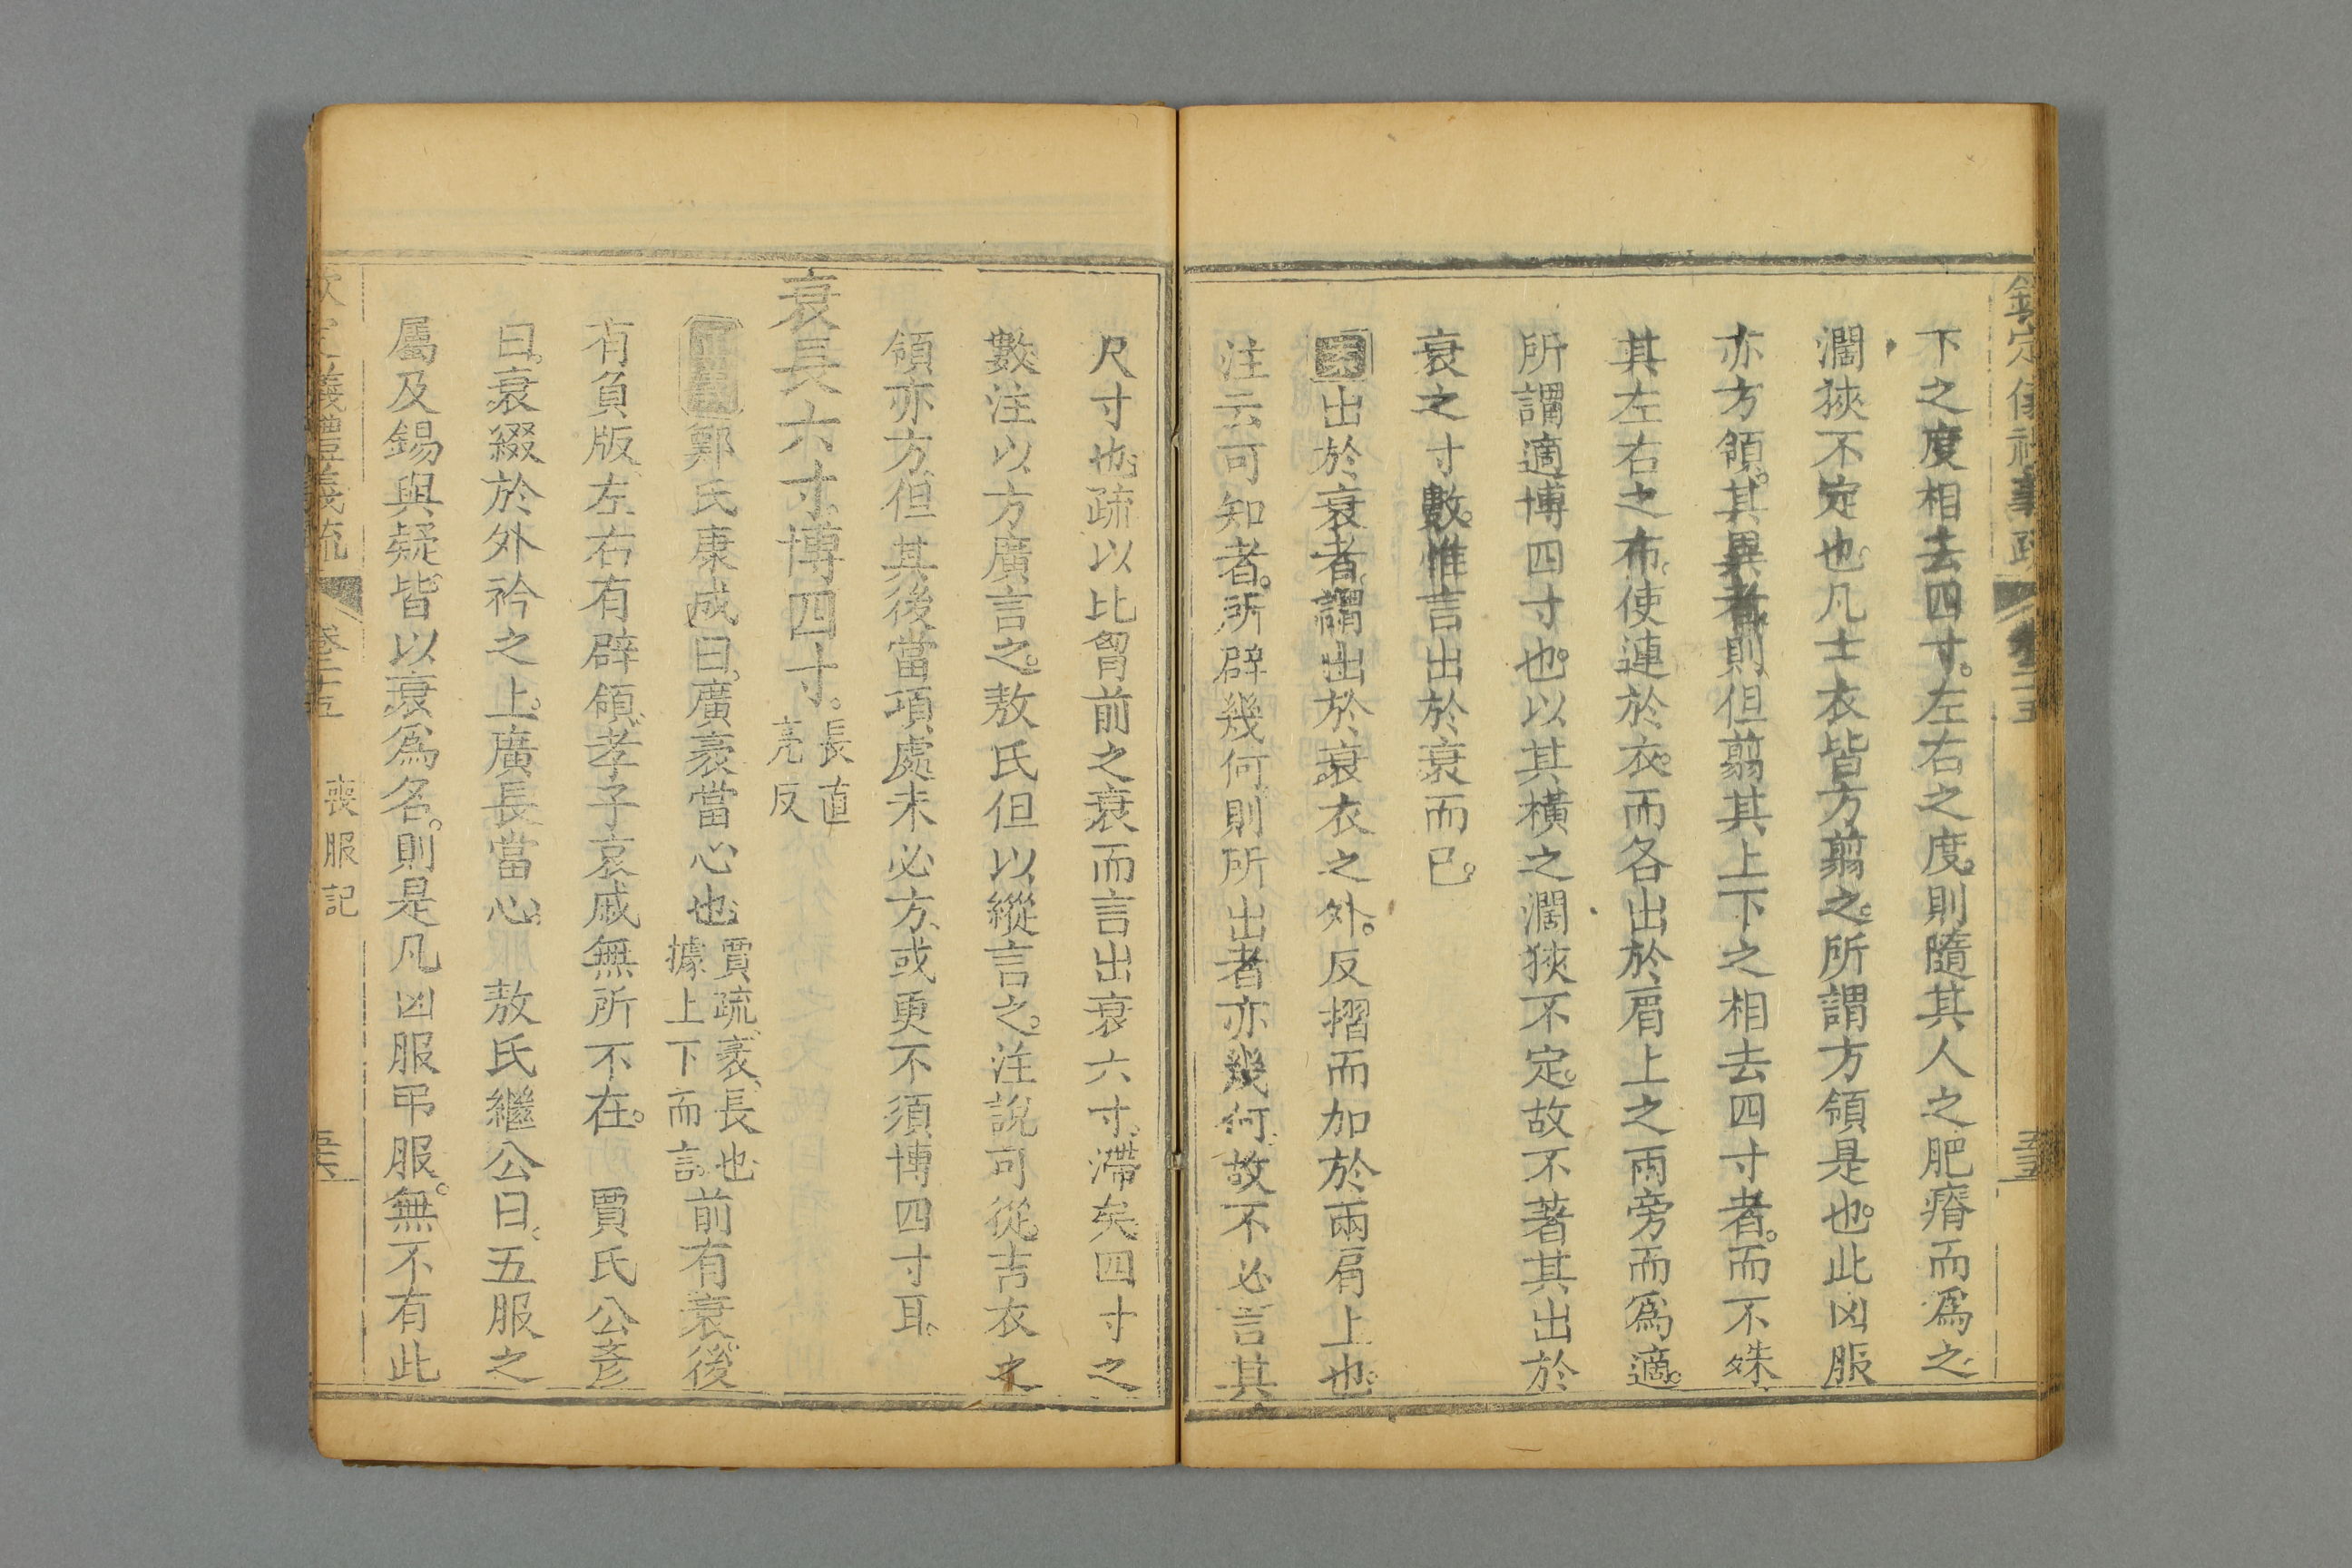 欽定儀禮義疏 卷二十五 五五
下之度相去四寸。左右之度。則隨其人之肥瘠而爲之
濶狹不定也。凡士衣皆方翦之。所謂方領是也。此凶服
亦方領。其異者。則但翦其上下之相去四寸者。而不殊
其左右之布。使連於衣。而各出於肩上之兩旁而爲適。
所謂適博四寸也。以其橫之濶狹不定。故不著其出於
衰之寸數。惟言出於衰而已。
案出於衰者。謂出於衰衣之外。反摺而加於兩肩上也。
注云可知者。所辟幾何。則所出者亦幾何。故不必言其
尺寸也。疏以比胷前之衰而言出衰六寸。滯矣。四寸之
數。注以方廣言之。敖氏但以縱言之。注說可從。吉衣之
領亦方。但其後當項處未必方。或更不須博四寸耳。
衰長六寸。博四寸。長直亮反
正義鄭氏康成曰。廣袤當心也。賈疏。袤、長也。據上下而言。前有衰。後
有負版。左右有辟領。孝子哀戚無所不在。 賈氏公彥
曰。衰綴於外衿之上。廣長當心。 敖氏繼公曰。五服之
屬及錫與疑。皆以衰爲名。則是凡凶服弔服。無不有此
欽定儀禮義疏 卷二十五 喪服記 五六